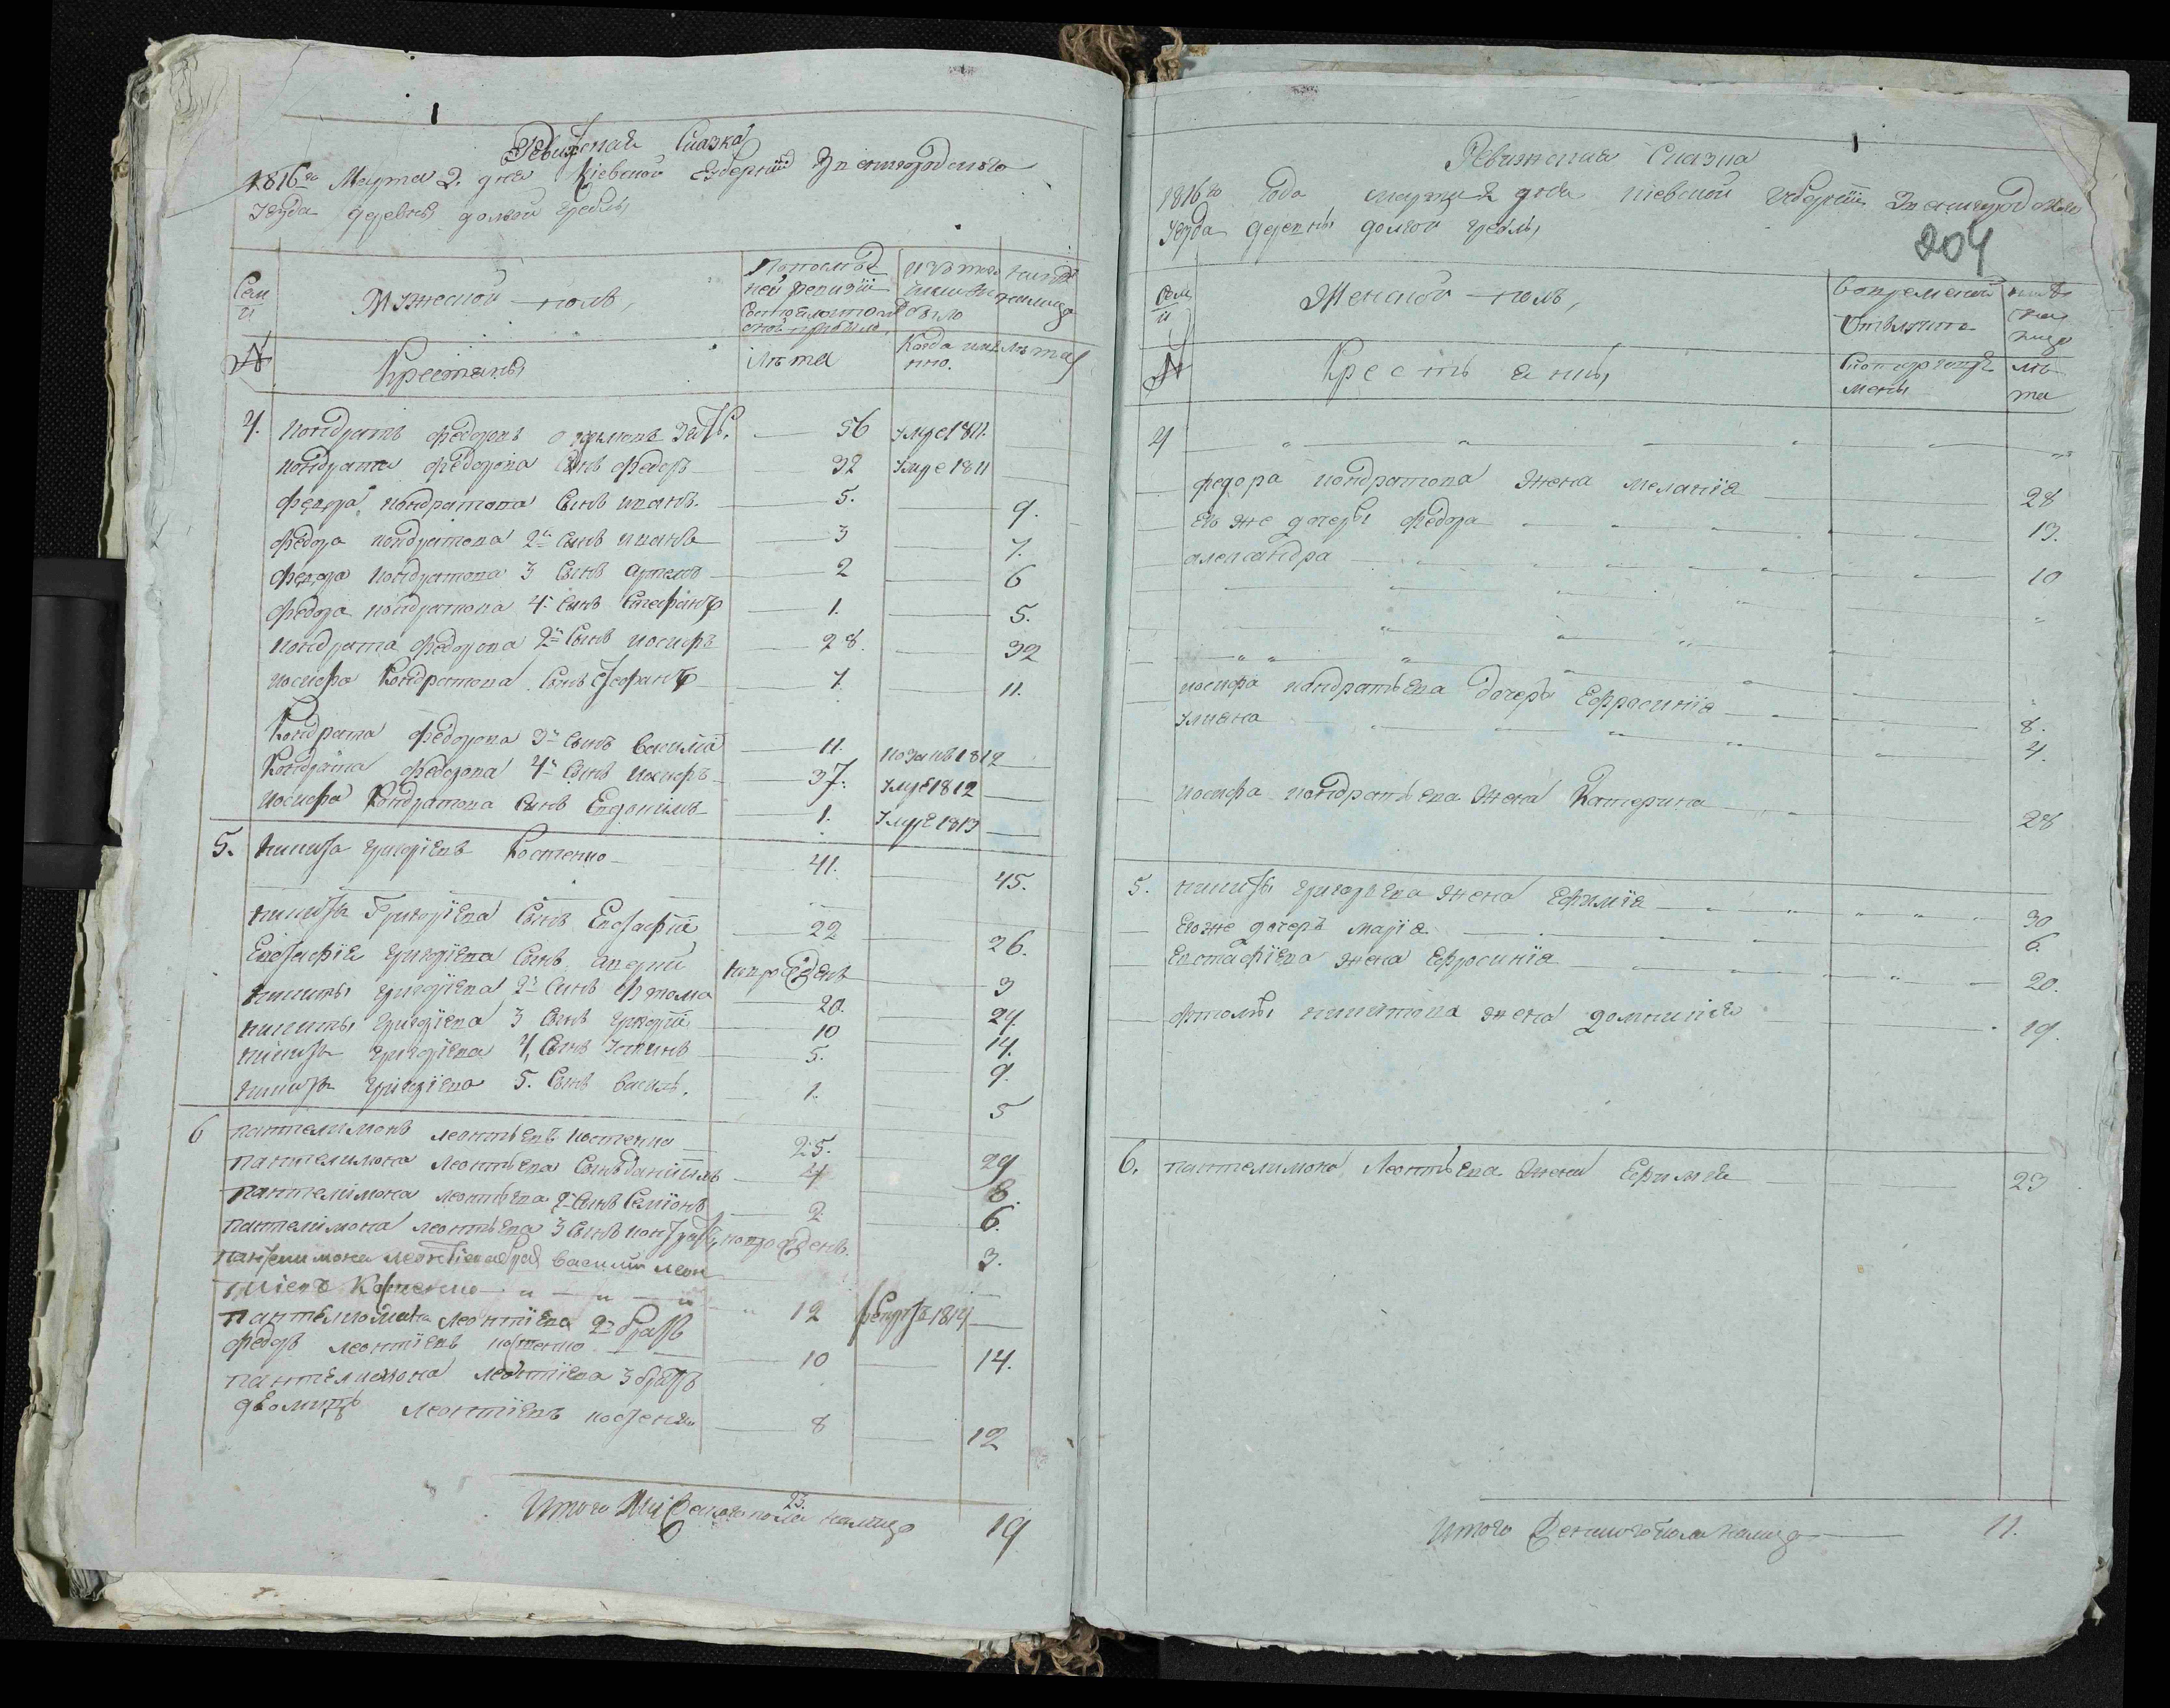 Ревизская Сказка
1816 го Марта 2. дня Кіевской Губерніи Звенигородскаго
уезда деревни долгой гребли,
Семьи
Мужеской поль,
По последней ревизіи состояло и после оной прибыло,
Изъ того числа выбыло
Ныне налицо
№
Крестьяны
Лѣта
Когда имянно.
Лѣта
4. Кондратъ федоровъ 56 Умре 1811.
Кондрата федорова Сынъ федоръ 32 Умре 1811
федора Кондратова Сынъ иванъ. 5. 9.
федора Кондратова 2й Сынъ иванъ 3 7.
федора Кондратова 3 Сынъ артемъ 2 6
федора Кондратова 4й Сынъ Стефанъ 1. 5.
Кондрата федорова 2й Сынъ иосифъ 28. 32
иосифа Кондратова Сынъ Стефанъ 7. 11.
Кондрата федорова 3й Сынъ василій 11. 1812
Кондрата федорова 4й Сынъ иосифъ 37. Умре 1812
иосифа Кондратова Сынъ Евдокимъ 1. Умре 1813
5. никита григоріевъ Костенко 41. 45.
никиты Григоріева Сынъ Евстафій 22 26.
Евстафія григоріева Сынъ андрій новорожденъ 3
никиты григоріева 2й Сынъ фтома 20. 24.
никиты григоріева 3 Сынъ григорій 10 14.
никиты григоріева 4, Сынъ Устинъ 5. 9.
никиты григоріева 5. Сынъ василь. 1. 5
6 пантелимонъ леонтьевъ костенко 25. 29
пантелимона леонтьева Сынъ даніилъ 4 8.
пантелимона леонтьева 2й Сынъ Семіонъ 2 6.
пантелимона леонтьева 3 Сынъ кондратъ новорожденъ. 3.
пантелимона леонтіева братъ василій леон
тіевъ Костенко " " " " 12 1814
пантелимона леонтіева 2й братъ
федоръ леонтіевъ костенко 10 14.
пантелимона леонтіева 3 братъ
леонтіевъ костенко 8 12
Итого Мужеска пола 23. налицо 19

Ревизская Сказка
1816 го года марта 2 дня кіевской губерніи Звенигородскаго
уезда деревни долгой гребли,
204
Семьи
Женской поль,
Во временной отлучке
ныне налицо
№
Крестьяны,
Съ котораго времени
лета
4
федора кондратова жена меланія 28
его же дочери федора 13.
александра 10
иосифа кондратьева дочери Ефросинія 8.
уляна 4.
иосифа кондратьева жена Катерина 28
5. никиты григорьева жена Ефимія 30
его же дочеръ марія 6.
Евстафіева жена Ефросинія 20.
фтомы никитова жена домникія 19.
6. пантелимона Леонтьева жена Ефимія 23
Итого Женскаго пола налицо 11.